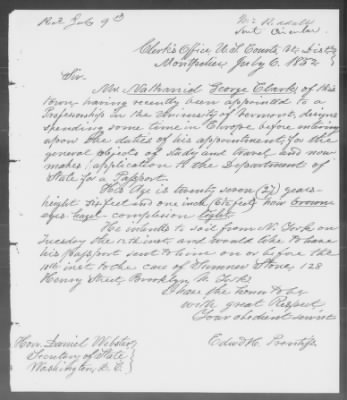 Recd July 9th
Mr. Riddall
Sent Circular
Clerk's Office U.S. Courts, Vt. Dist.
Montpelier July 6, 1852
Sir.
Mr. Nathaniel George Clark of this
town having recently been appointed to a
Professorship in the University of Vermont, designs
spending some time in Europe before entering
upon the duties of his appointment, for the
general objects of study and travel, and now
makes application to the Department of
State for a Passport.
His Age is twenty seven (27) years-
height six feet and one inch, hair brown
eyes hazel - complexion light.
He intends to sail from N. York on
Tuesday the 13th inst. and would like to have
his Passport sent to him on or before the
10th inst. to the care of Sumner Stone, 128
Henry Street Brooklyn N. York
I have the honor to be
with great Respect
Your obedient serv't
Edwd H. Prentiss
Hon. Daniel Webster
Secretary of State
Washington, D. C.